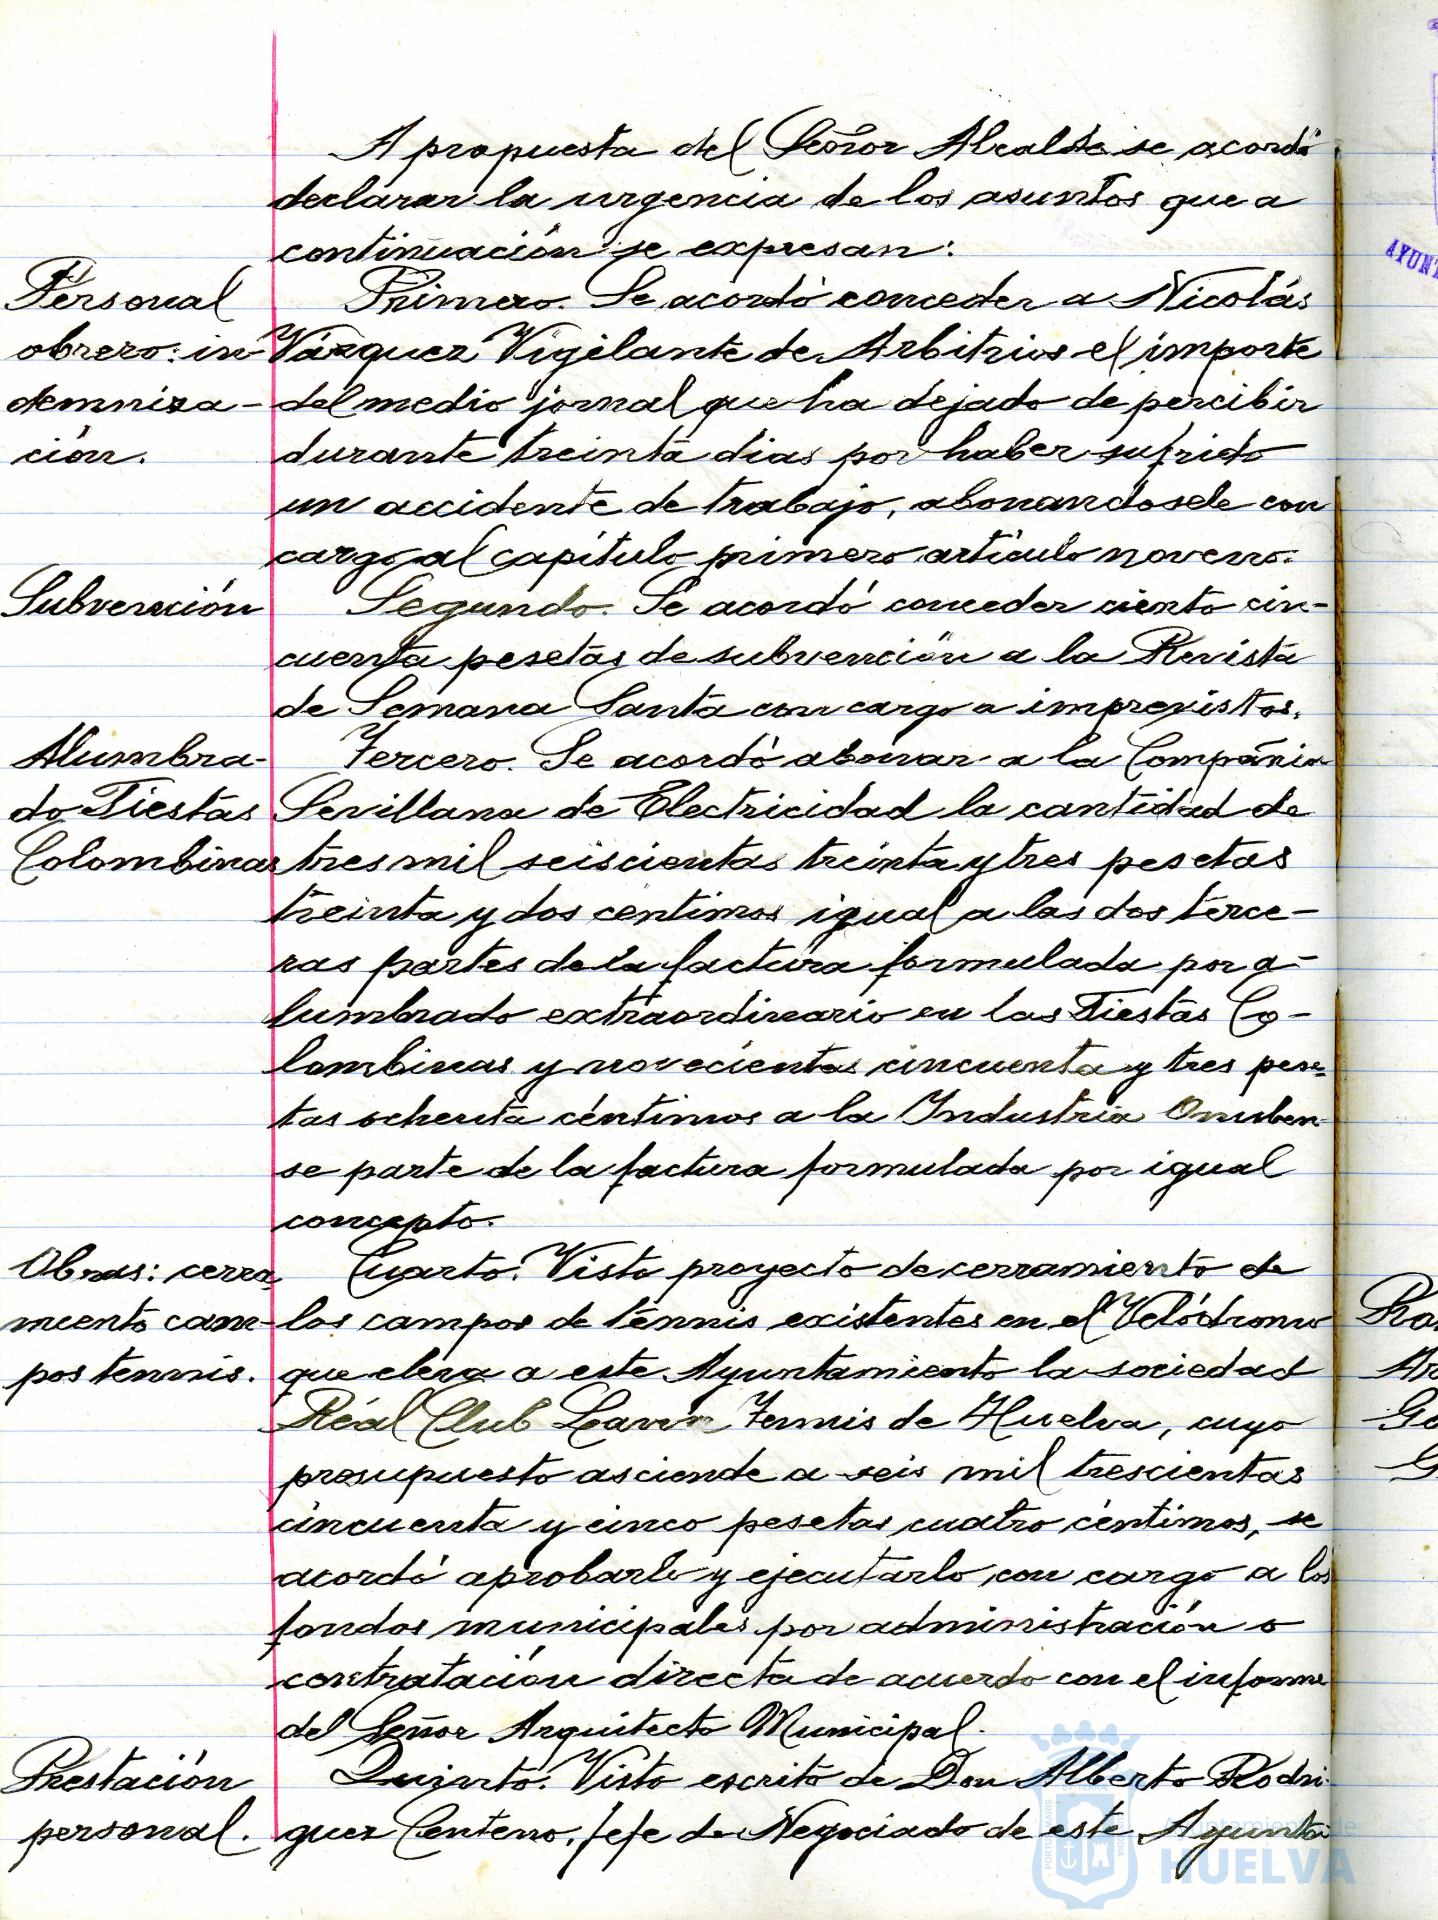 A propuesta del Señor Alcalde se acordó
declarar la urgencia de los asuntos que a
continuación se expresan:
Personal
obrero: in-
demniza-
ción.
Primero. Se acordó conceder a Nicolás
Vázquez Vigilante de Arbitrios el importe
del medio jornal que ha dejado de percibir
durante treinta dias por haber sufrido
un accidente de trabajo, abonandosele con
cargo al capítulo primero artículo noveno.
Subvención
Segundo. Se acordó conceder ciento cin-
cuenta pesetas de subvención a la Revista
de Semana Santa con cargo a imprevistos.
Alumbra-
do Fiestas
Colombinas
Tercero. Se acordó abonar a la Compañia
Sevillana de Electricidad la cantidad de
tres mil seiscientas treinta y tres pesetas
treinta y dos centimos igual a las dos terce-
ras partes de la factura formulada por a-
lumbrado extraordinario en las Fiestas Co-
lombinas y novecientas cincuenta y tres pese-
tas ochenta céntimos a la Industria Onuben-
se parte de la factura formulada por igual
concepto.
Obras: cerra-
miento cam-
pos tennis.
Cuarto. Visto proyecto de cerramiento de
los campos de tennis existentes en el Velódromo
que eleva a este Ayuntamiento la sociedad
Real Club Lawn Tennis de Huelva, cuyo
presupuesto asciende a seis mil trescientas
cincuenta y cinco pesetas cuatro céntimos, se
acordó aprobarlo y ejecutarlo con cargo a los
fondos municipales por administración o
contratación directa de acuerdo con el informe
del Señor Arquitecto Municipal.
Prestación
personal.
Quinto. Visto escrito de Don Alberto Rodri-
guez Centeno, Jefe de Negociado de este Ayunta-
Ayuntamiento de
HUELVA
AYUNT